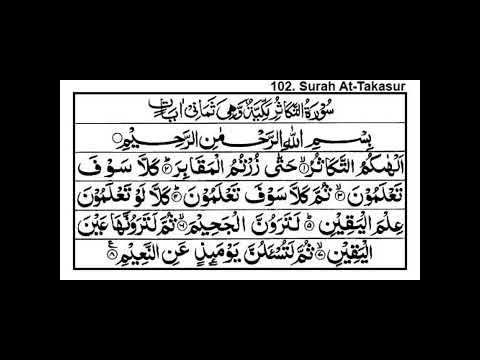 102. Surah At-Takasur
سُوْرَةُ التَّكَاثُرِ مَكِّيَّةٌ وَّهِيَ ثَمَانِيْ اٰيَاتٍ
بِسْمِ اللّٰهِ الرَّحْمٰنِ الرَّحِيْمِ ۝
اَلْهٰىكُمُ التَّكَاثُرُ ۝۱ حَتّٰى زُرْتُمُ الْمَقَابِرَ ۝۲ كَلَّا سَوْفَ
تَعْلَمُوْنَ ۝۳ ثُمَّ كَلَّا سَوْفَ تَعْلَمُوْنَ ۝۴ كَلَّا لَوْ تَعْلَمُوْنَ
عِلْمَ الْيَقِيْنِ ۝۵ لَتَرَوُنَّ الْجَحِيْمَ ۝۶ ثُمَّ لَتَرَوُنَّهَا عَيْنَ
الْيَقِيْنِ ۝۷ ثُمَّ لَتُسْـَٔلُنَّ يَوْمَىِٕذٍ عَنِ النَّعِيْمِ ۝۸